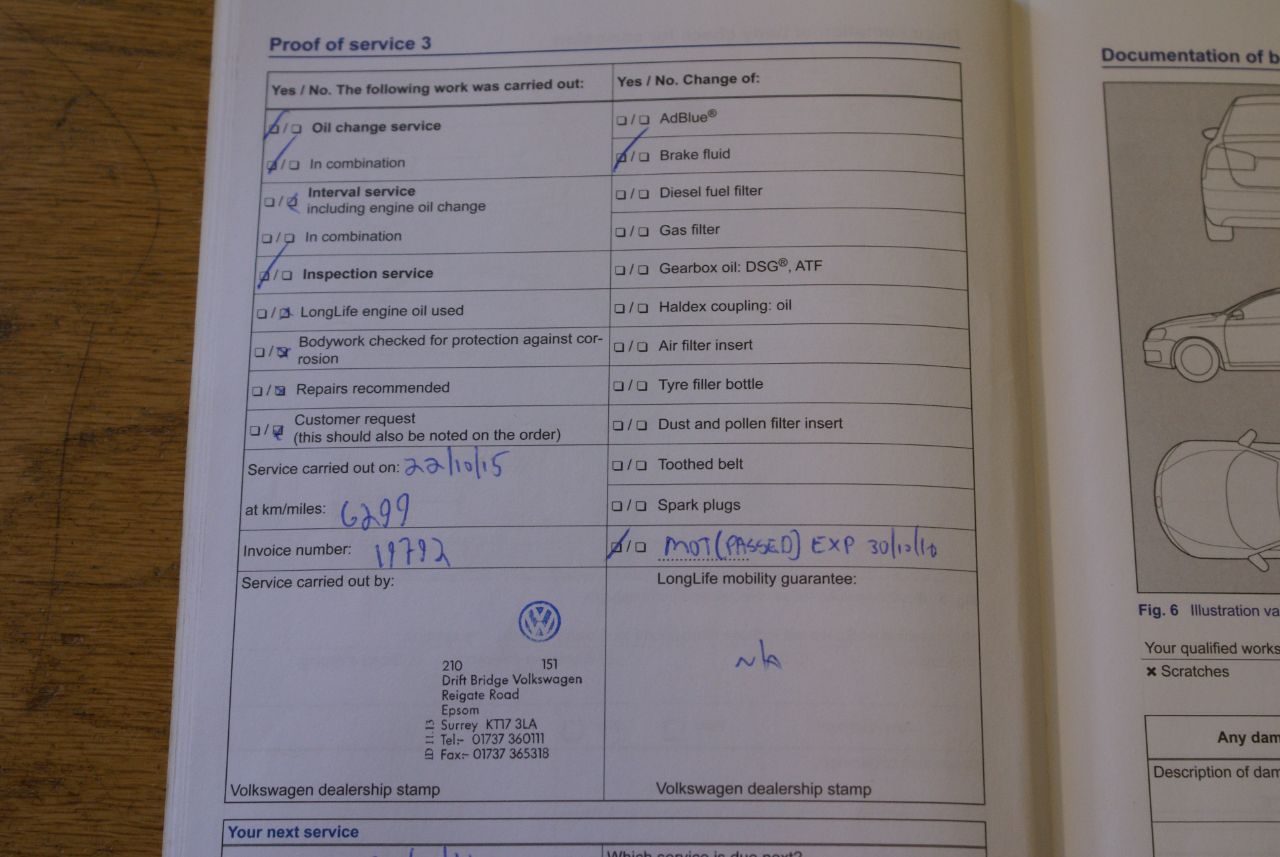 Proof of service 3
Yes / No. The following work was carried out:
Oil change service
In combination
Interval service
including engine oil change
In combination
Inspection service
LongLife engine oil used
Bodywork checked for protection against cor-
rosion
Repairs recommended
Customer request
(this should also be noted on the order)
Service carried out on: 22/10/15
at km/miles: 6299
Invoice number: 19792
Service carried out by:
210 151
Drift Bridge Volkswagen
Reigate Road
Epsom
Surrey KT17 3LA
Tel:- 01737 360111
Fax:- 01737 365318
ID 11.13
Volkswagen dealership stamp
Yes / No. Change of:
AdBlue®
Brake fluid
Diesel fuel filter
Gas filter
Gearbox oil: DSG®, ATF
Haldex coupling: oil
Air filter insert
Tyre filler bottle
Dust and pollen filter insert
Toothed belt
Spark plugs
MOT (PASSED) EXP 30/10/16
LongLife mobility guarantee:
N/A
Volkswagen dealership stamp
Your next service
Which service is due next?
Documentation of b
Fig. 6 Illustration va
Your qualified works
× Scratches
Any dam
Description of dam